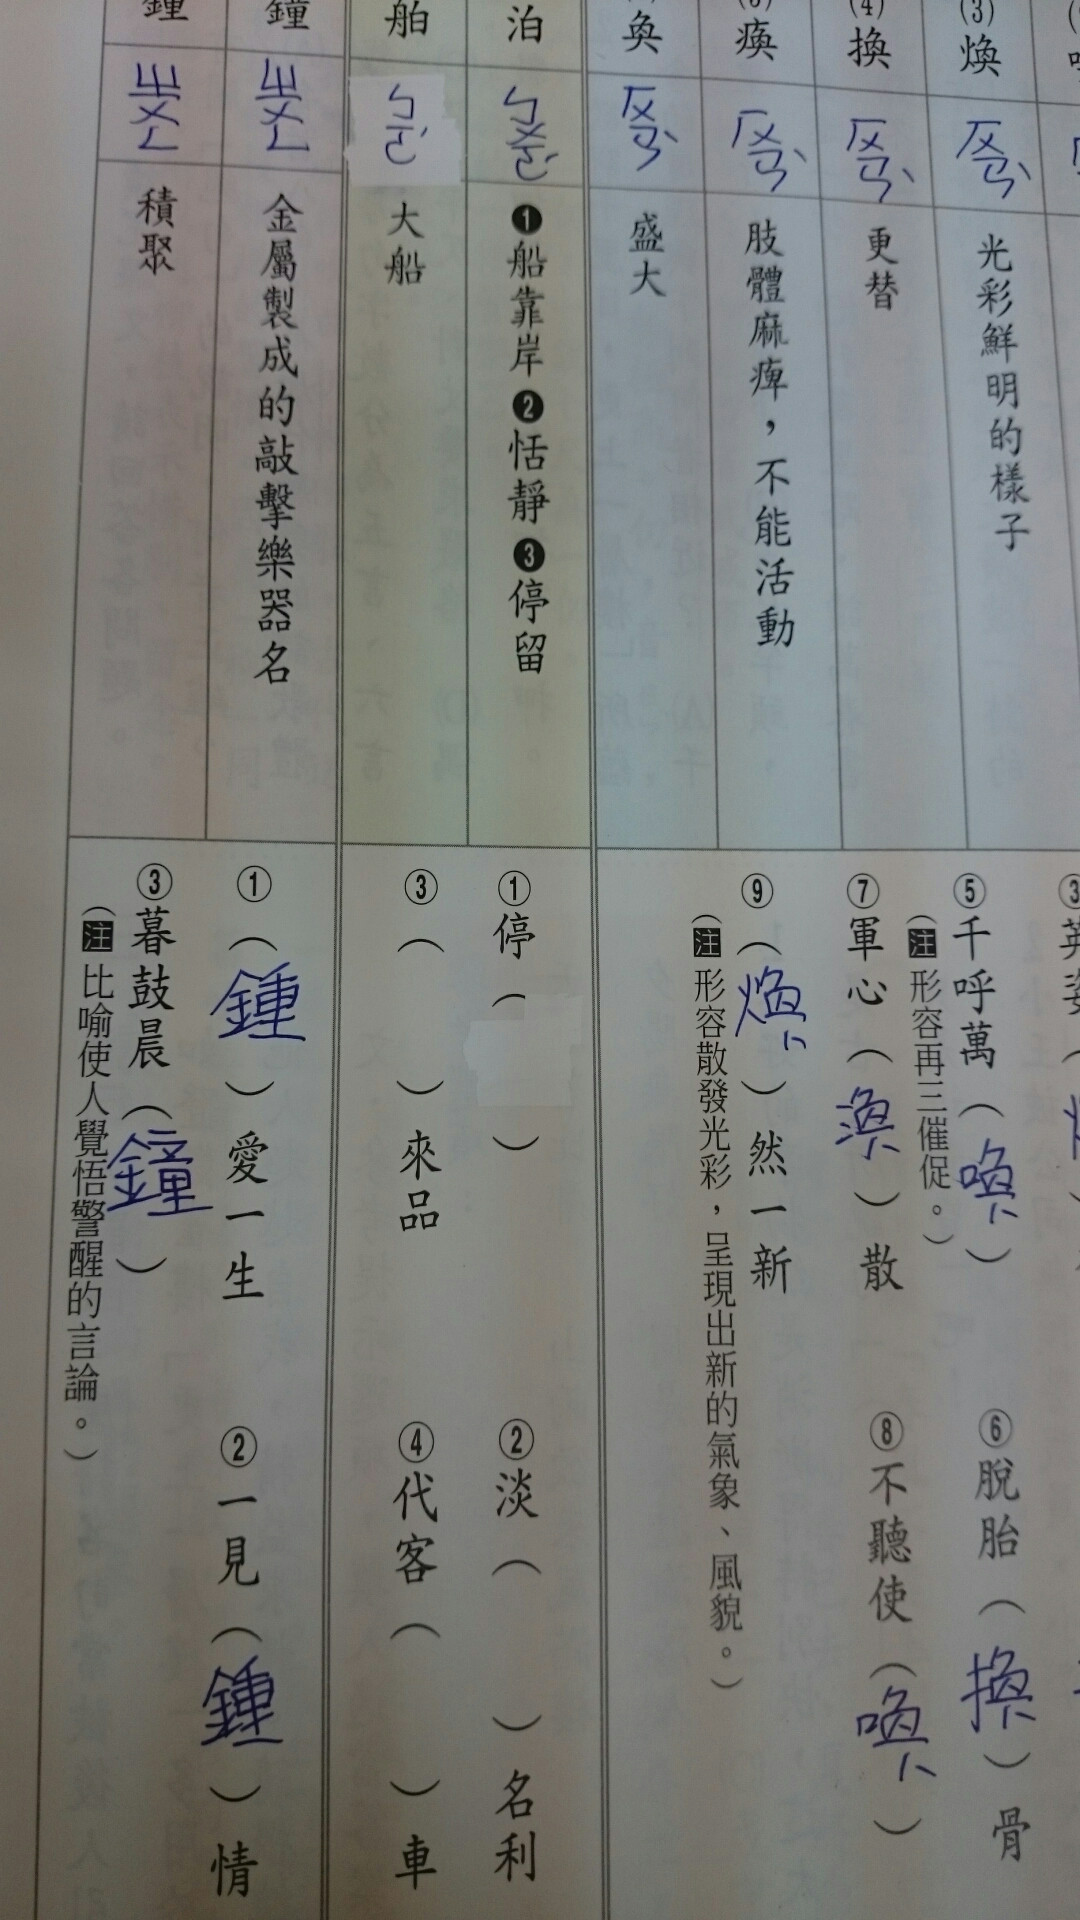 (3)
煥
ㄏㄨㄢˋ
光彩鮮明的樣子
(4)
換
ㄏㄨㄢˋ
更替
瘓
ㄏㄨㄢˋ
肢體麻痺，不能活動
奐
ㄏㄨㄢˋ
盛大
泊
ㄅㄛˊ
❶船靠岸❷恬靜❸停留
舶
ㄅㄛˊ
大船
鐘
ㄓㄨㄥ
金屬製成的敲擊樂器名
鍾
ㄓㄨㄥ
積聚
③英姿（
⑤千呼萬（喚）
（注形容再三催促。）
⑥脫胎（換）骨
⑦軍心（渙）散
⑧不聽使（喚）
⑨（煥）然一新
（注形容散發光彩，呈現出新的氣象、風貌。）
①停（　）
②淡（　）名利
③（　）來品
④代客（　）車
①（鍾）愛一生
②一見（鍾）情
③暮鼓晨（鐘）
（注比喻使人覺悟警醒的言論。）